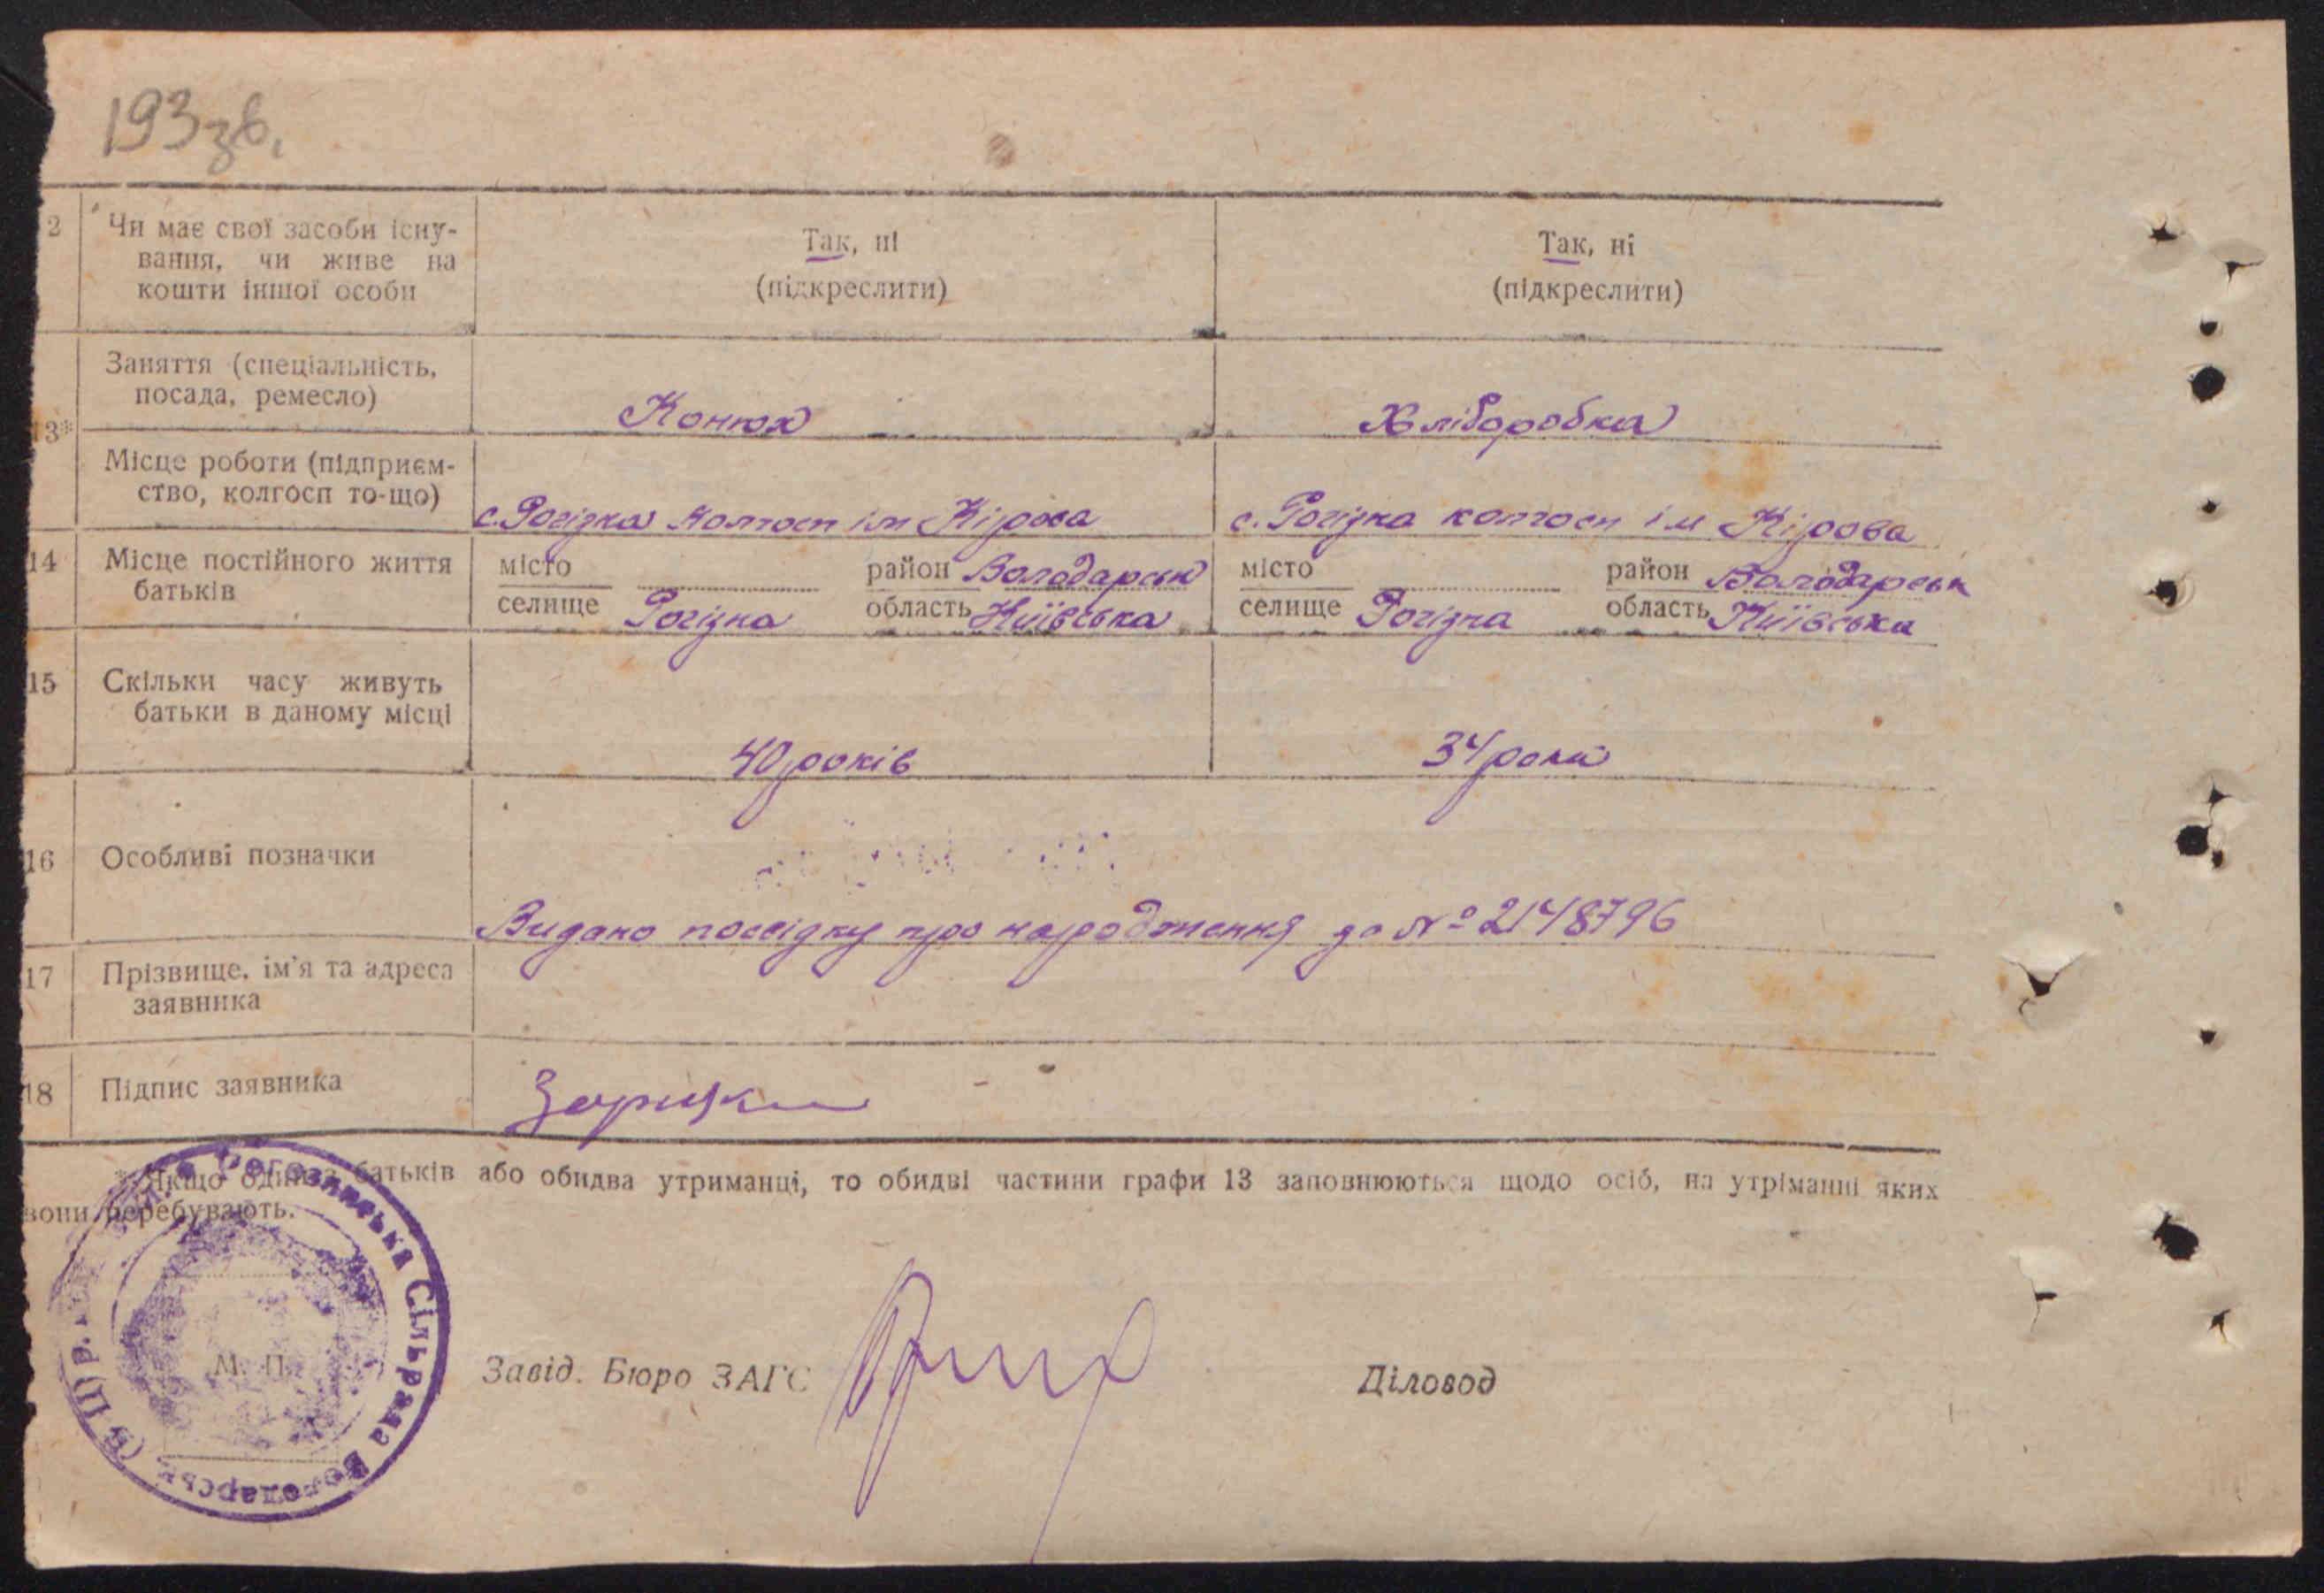 193зв.
2 Чи має свої засоби існу-
вання, чи живе на
кошти іншої особи
Так, ні
(підкреслити)
Так, ні
(підкреслити)
13*
Заняття (спеціальність,
посада, ремесло)
Конюх
Хліборобка
Місце роботи (підприєм-
ство, колгосп то-що)
с. Рогізка колгосп ім Кірова
с. Рогізка колгосп ім Кірова
14 Місце постійного життя
батьків
місто район Володарськ
селище Рогізна область Київська
місто район Володарськ
селище Рогізна область Київська
15 Скільки часу живуть
батьки в даному місці
40 років
34 роки
16 Особливі позначки
Видано посвідку про народження за № 2148796
17 Прізвище, ім'я та адреса
заявника
18 Підпис заявника
* Якщо один з батьків або обидва утриманці, то обидві частини графи 13 заповнюються щодо осіб, на утріманні яких
вони перебувають.
Сільрада Володарськ
М. П.
Завід. Бюро ЗАГС
Діловод